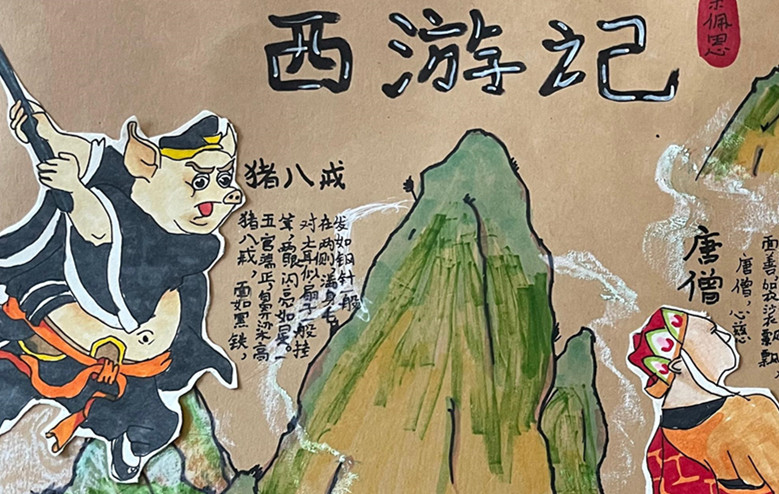 西游记
佩恩
猪八戒
猪八戒，面如黑铁，
五官端正鼻梁高
耸两眼闪亮如星。
对耳似扇子般挂
在两侧，满身毛
发如钢针一般
唐僧
唐僧，心慈
面善，袈裟飘飘，